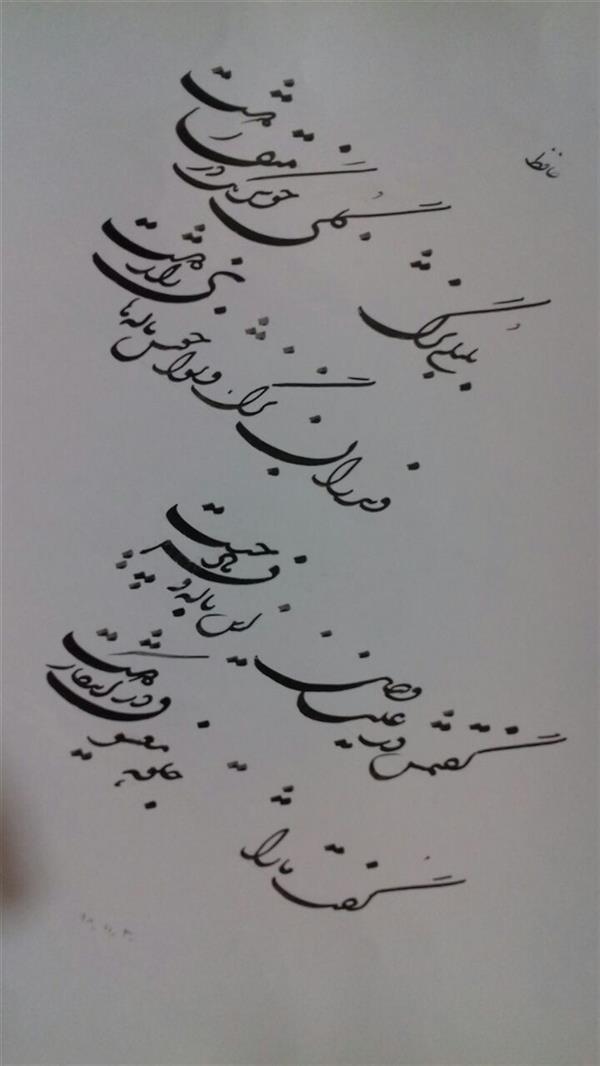 حافظ
بلبلی برگ گلی خوش رنگ در منقار داشت
وندران برگ و نوا خوش ناله ها ی زار داشت
گفتمش در عین وصل این ناله و فریاد چیست
گفت ما را جلوه معشوق در این کار داشت